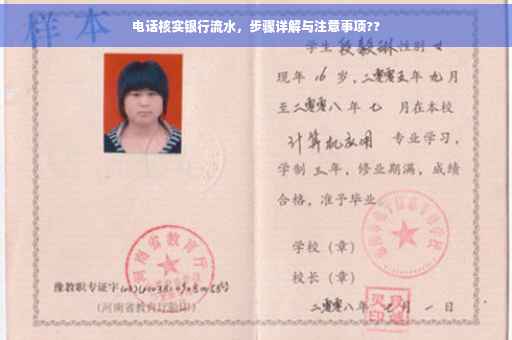 电话核实银行流水，步骤详解与注意事项??
样本
学生 段毅琳 性别 女
现年 16 岁，二零零五年 九 月
至二零零八年 七 月在本校
计算机应用 专业学习，
学制 三 年，修业期满，成绩
合格，准予毕业。
学校（章）
校长（章）
二零零八年 月 一 日
河南省教育厅
豫教职专证字
（河南省教育厅验印）